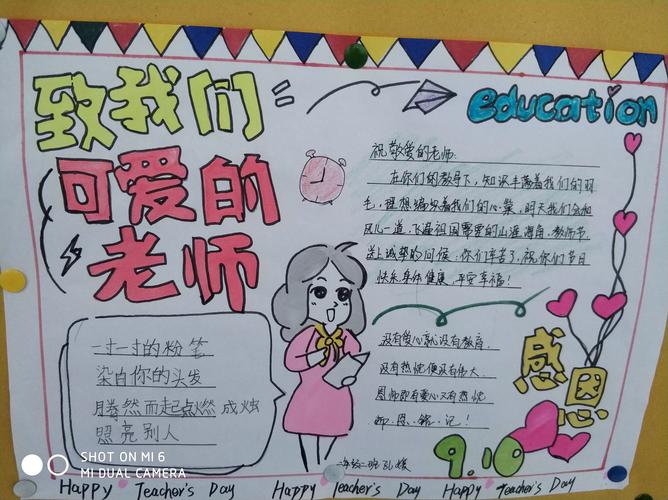 致我们
可爱的
老师
education
祝敬爱的老师:
在你们的教导下,知识丰荡着我们的羽
毛,理想编织着我们的心,棠,明天我们会和
风儿一道,飞遍祖国需要的山涯海角,教师节
送上诚挚的问候,你们辛苦了,祝你们节日
快乐身体健康,平安幸福!
一寸一寸的粉笔
染白你的头发
腾然而起点燃成烛
照亮别人
没有爱心就没有教育,
没有热忱便没有伟大,
恩师既有爱心又有热忱
师,恩,铭,记!
感
恩
9.10
二班孔媛
Happy Teacher's Day Happy Teacher's Day Happy Teacher's Day
SHOT ON MI 6
MI DUAL CAMERA